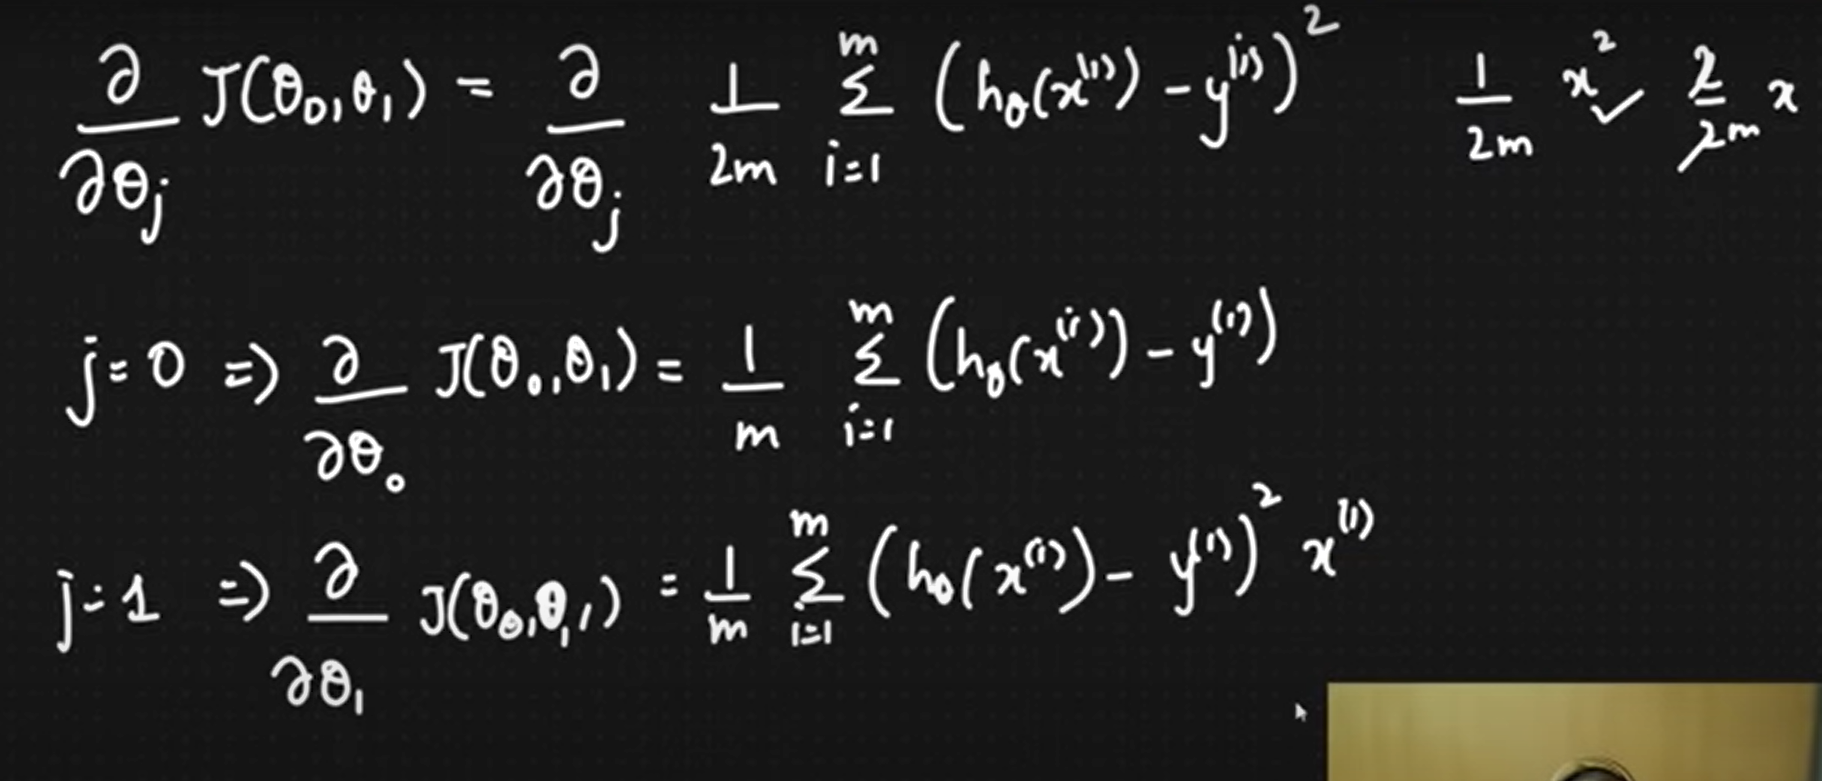 ∂/∂θj J(θ0,θ1) = ∂/∂θj 1/2m m Σ i=1 (hθ(x^(i)) - y^(i))^2 1/2m x^2 ✓ 2/2m x
j=0 => ∂/∂θ0 J(θ0,θ1) = 1/m m Σ i=1 (hθ(x^(i)) - y^(i))
j=1 => ∂/∂θ1 J(θ0,θ1) = 1/m m Σ i=1 (hθ(x^(i)) - y^(i))^2 x^(i)